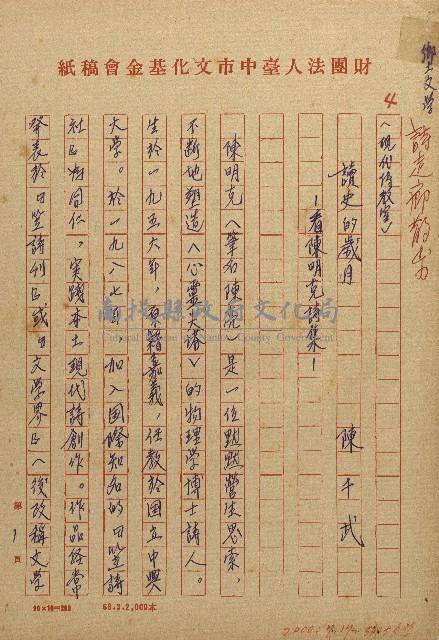 財團法人臺中市文化基金會稿紙
鄉土文學
詩走廊散步
4
〈現代詩教室〉
讀史的歲月
—看陳明克詩集—
陳千武
陳明克〈筆名陳亮〉是一位默默營生思索，
不斷地塑造〈心靈大樓〉的物理學博士詩人。
生於一九五六年，原籍嘉義，任教於國立中興
大學。於一九八七年，加入国際知名的『笠詩
社』為同仁，實踐本土現代詩創作。作品經常
發表於『笠詩刊』或『文學界』〈後改稱文學
南投縣政府文化局
Cultural Bureau of Nantou County Government
第1頁
68.3.2,000本